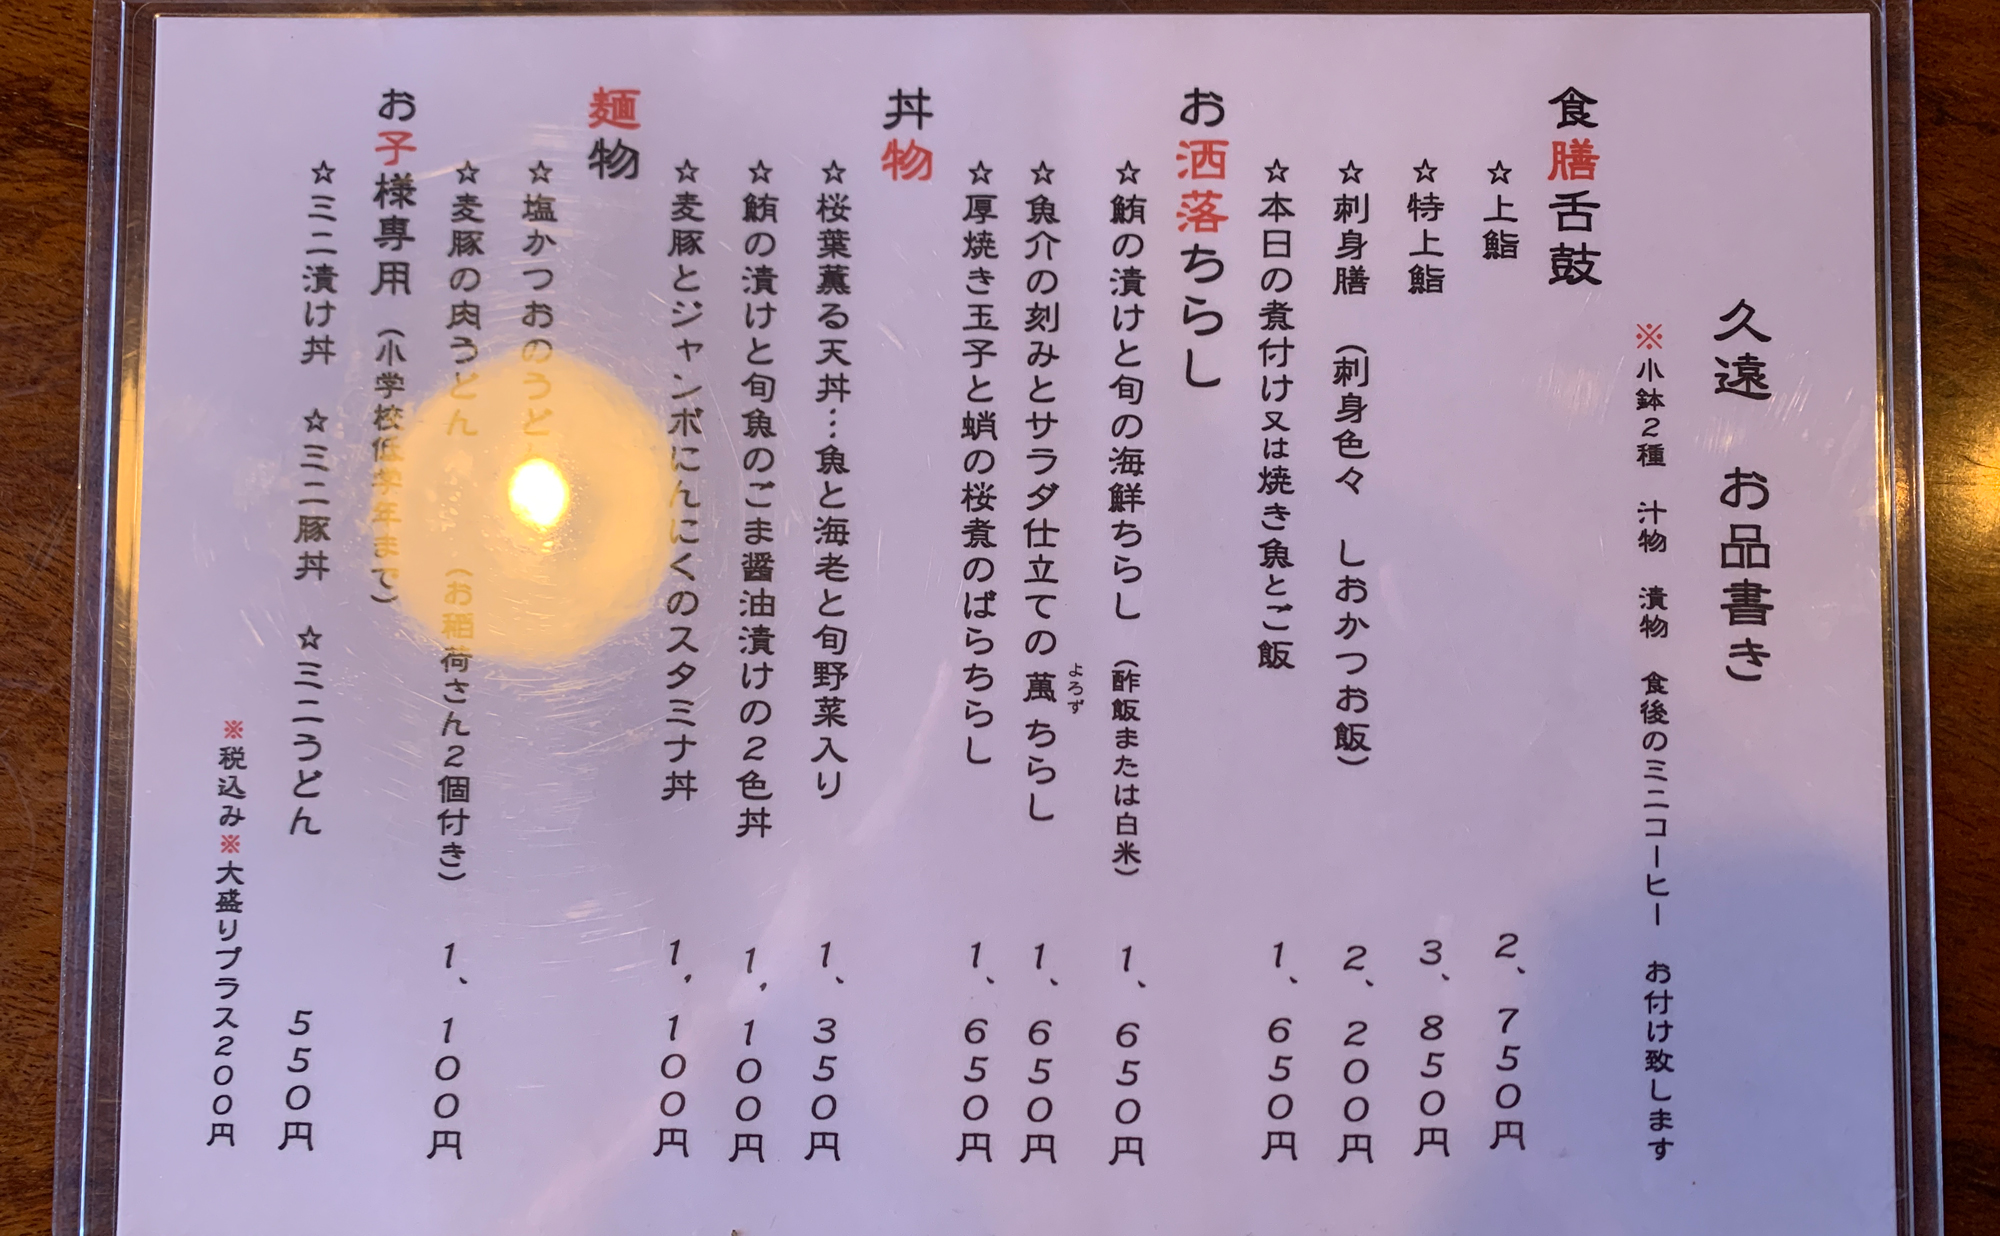 久遠　お品書き
※小鉢2種　汁物　漬物　食後のミニコーヒー　お付け致します
食膳舌鼓
☆上鮨　2、750円
☆特上鮨　3、850円
☆刺身膳　（刺身色々　しおかつお飯）　2、200円
☆本日の煮付け又は焼き魚とご飯　1、650円
お洒落ちらし
☆鮪の漬けと旬の海鮮ちらし（酢飯または白米）　1、650円
☆魚介の刻みとサラダ仕立ての萬ちらし　1、650円
よろず
☆厚焼き玉子と蛸の桜煮のばらちらし　1、650円
丼物
☆桜葉薫る天丼…魚と海老と旬野菜入り　1、350円
☆鮪の漬けと旬魚のごま醤油漬けの2色丼　1，100円
☆麦豚とジャンボにんにくのスタミナ丼　1，100円
麺物
☆塩かつおのうど
☆麦豚の肉うどん　（お稲荷さん2個付き）　1、100円
お子様専用（小学校低学年まで）
☆ミニ漬け丼　☆ミニ豚丼　☆ミニうどん　550円
※税込み※大盛りプラス200円